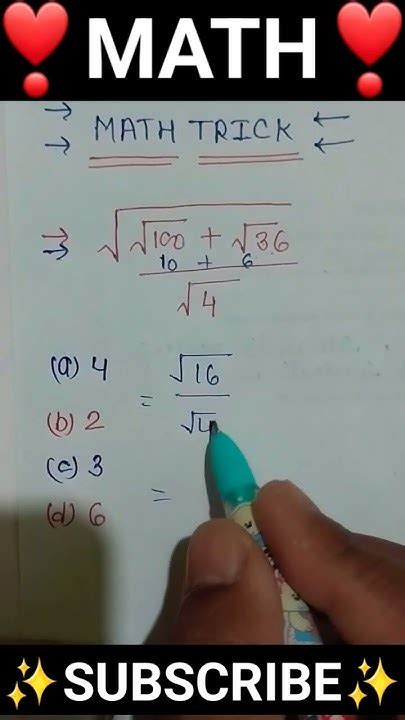 ❣MATH❣
→ MATH TRICK ←
→ ←
⇒ √(√100 + √36)
10 + 6
√4
(a) 4 = √16
(b) 2 √4
(c) 3 =
(d) 6
✨SUBSCRIBE✨